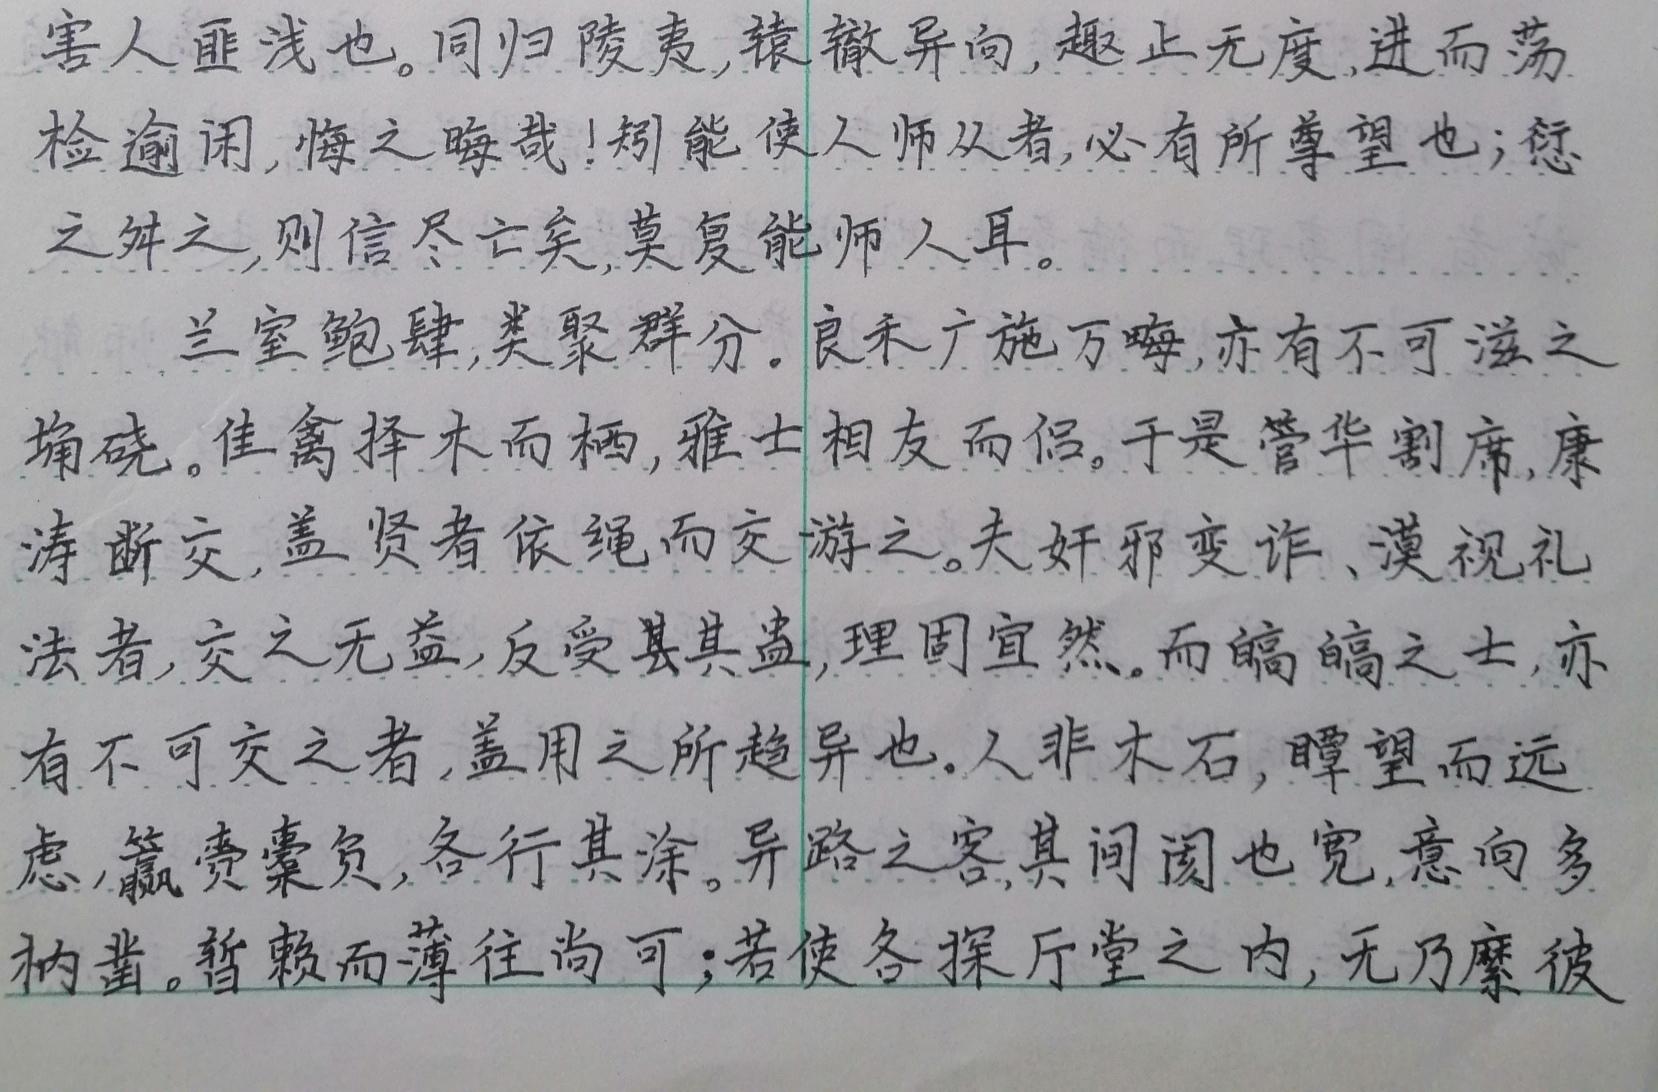 害人匪浅也。同归陵夷,辕辙异向,趣止无度,进而荡
检逾闲,悔之晦哉!矧能使人师从者,必有所尊望也;愆
之舛之,则信尽亡矣,莫复能师人耳。
兰室鲍肆,类聚群分。良禾广施万晦,亦有不可滋之
埆硗。佳禽择木而栖,雅士相友而侣。于是管华割席,康
涛断交,盖贤者依绳而交游之。夫奸邪变诈、漠视礼
法者,交之无益,反受其蛊,理固宜然。而皜皜之士,亦
有不可交之者,盖用之所趋异也。人非木石,瞫望而远
虑,籝赍囊负,各行其涂。异路之客,其间阂也宽,意向多
枘凿。暂赖而薄往尚可;若使各探厅堂之内,无乃縻彼